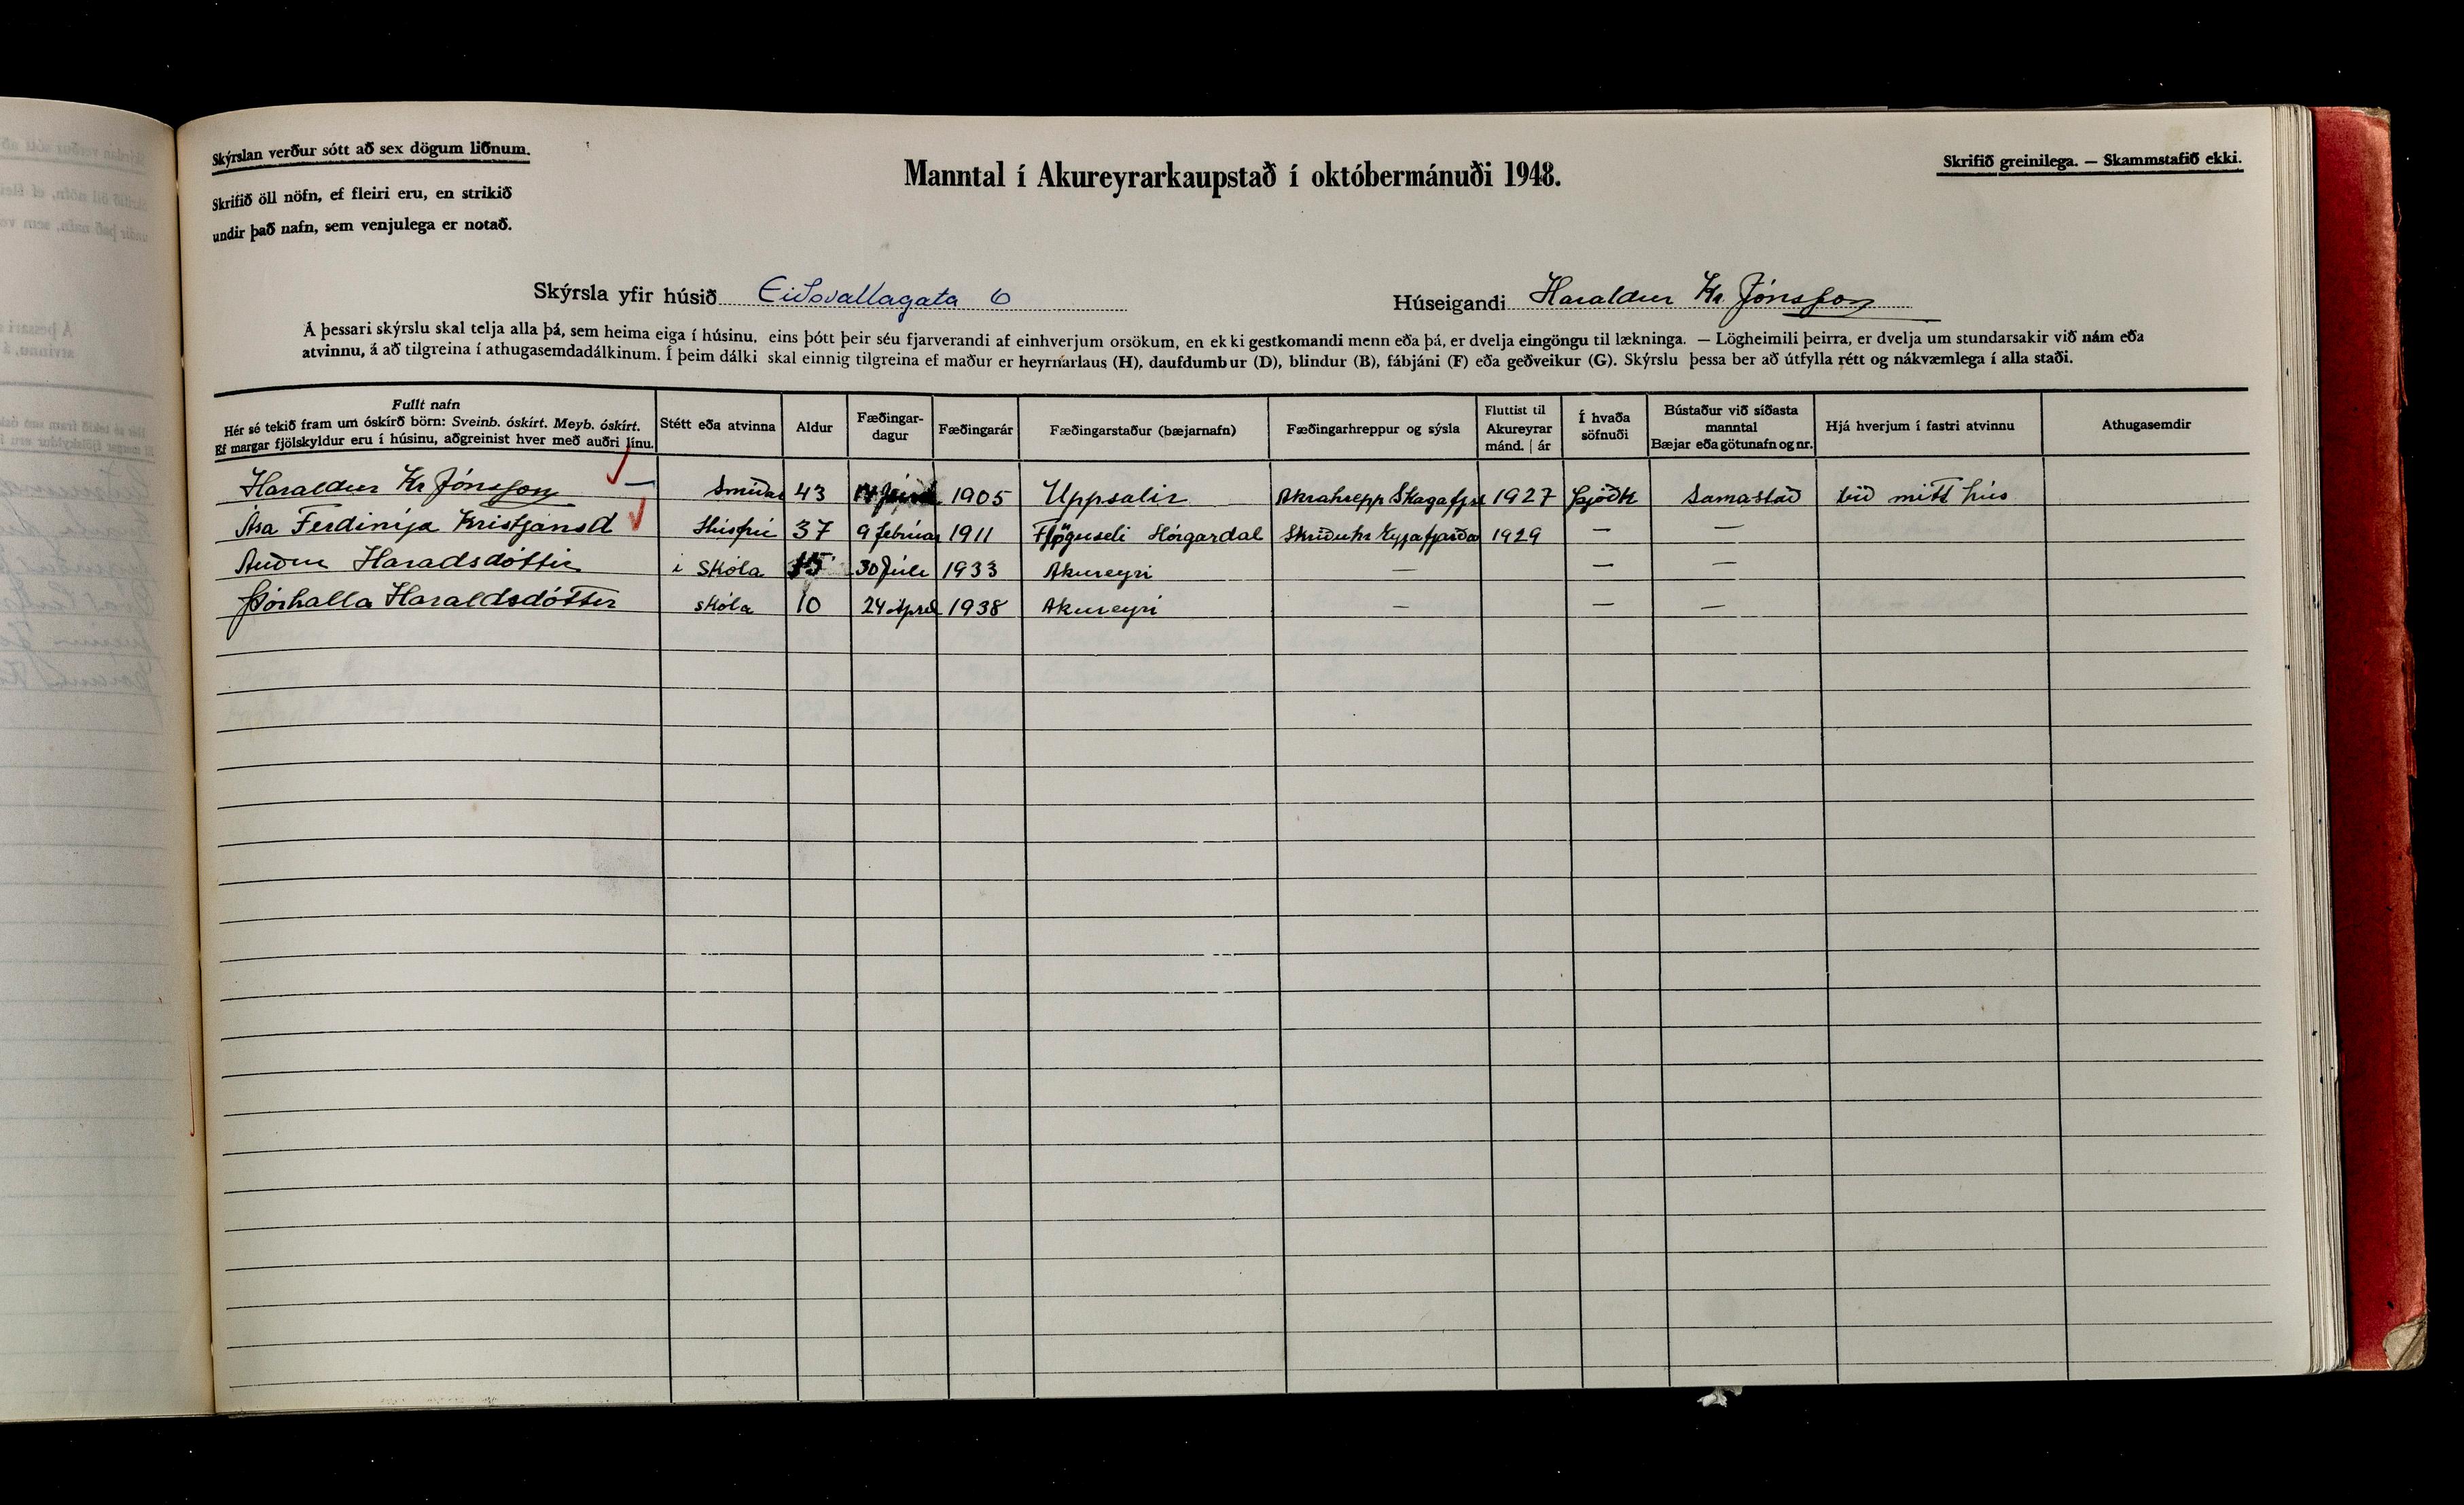 Skýrslan verður sótt að sex dögum liðnum.
Skrifið öll nöfn, ef fleiri eru, en strikið
undir það nafn, sem venjulega er notað.
Manntal í Akureyrarkaupstað í októbermánuði 1948.
Skrifið greinilega. — Skammstafið ekki.
Skýrsla yfir húsið Eiðsvallagata 6
Húseigandi Haraldur Kr. Jónsson
Á þessari skýrslu skal telja alla þá, sem heima eiga í húsinu, eins þótt þeir séu fjarverandi af einhverjum orsökum, en ekki gestkomandi menn eða þá, er dvelja eingöngu til lækninga. — Lögheimili þeirra, er dvelja um stundarsakir við nám eða
atvinnu, á að tilgreina í athugasemdadálkinum. Í þeim dálki skal einnig tilgreina ef maður er heyrnarlaus (H), daufdumbur (D), blindur (B), fábjáni (F) eða geðveikur (G). Skýrslu þessa ber að útfylla rétt og nákvæmlega í alla staði.
Fullt nafn
Hér sé tekið fram um óskírð börn: Sveinb. óskírt. Meyb. óskírt.
Ef margar fjölskyldur eru í húsinu, aðgreinist hver með auðri línu.
Stétt eða atvinna
Aldur
Fæðingar-
dagur
Fæðingarár
Fæðingarstaður (bæjarnafn)
Fæðingarhreppur og sýsla
Fluttist til
Akureyrar
mánd. | ár
Í hvaða
söfnuði
Bústaður við síðasta
manntal
Bæjar eða götunafn og nr.
Hjá hverjum í fastri atvinnu
Athugasemdir
Haraldur Kr Jónsson — Smiður 43 14 1905 Uppsalir Akrahrepp Skagafjs 1927 Þjóðk Samastað við mitt hús
Ása Ferdinija Kristjansd Húsfrú 37 9 febrúar 1911 Flöguseli Hörgardal Skriðuhr Eyjafjarða 1929 — —
Auður Haradsdóttir í Skóla 15 30 Júlí 1933 Akureyri — — —
Þórhalla Haraldsdóttir skóla 10 24 Apríl 1938 Akureyri — — —